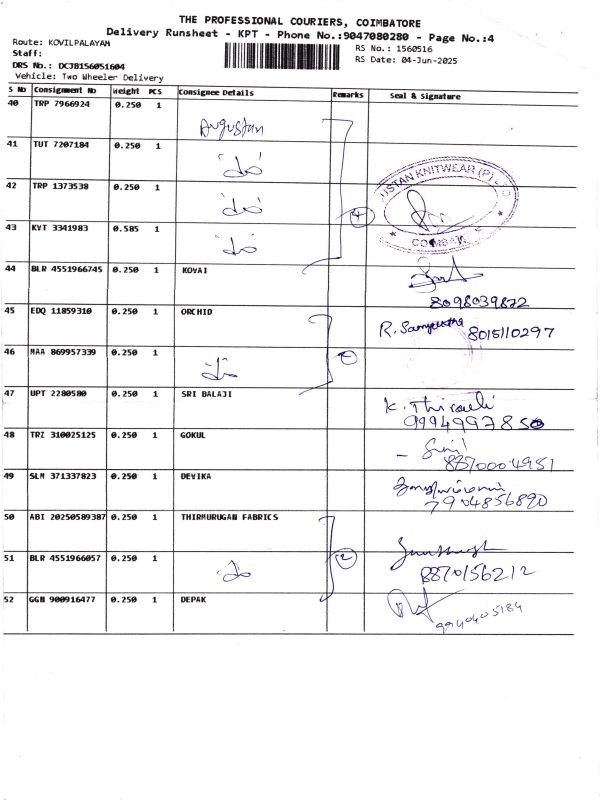 THE PROFESSIONAL COURIERS, COIMBATORE
Delivery Runsheet - KPT - Phone No.:9047080280 - Page No.:4
Route: KOVILPALAYAM
RS No.: 1560516
Staff:
RS Date: 04-Jun-2025
DRS No.: DCJB156051604
Vehicle: Two Wheeler Delivery
S No Consignment No Weight PCS Consignee Details Remarks Seal & Signature
40 TRP 7966924 0.250 1 Augustan
41 TUT 7207184 0.250 1 do
42 TRP 1373538 0.250 1 do
USTAN KNITWEAR (P)
4
COIMBA
43 KVT 3341983 0.585 1 do
44 BLR 4551966745 0.250 1 KOVAI
8098039872
45 EDQ 11859310 0.250 1 ORCHID
R. 8015110297
46 MAA 869957339 0.250 1 do
47 UPT 2280580 0.250 1 SRI BALAJI
K.
9994997850
48 TRZ 310025125 0.250 1 GOKUL
49 SLM 371337823 0.250 1 DEVIKA
7904856890
50 ABI 20250589387 0.250 1 THIRMURUGAN FABRICS
2
51 BLR 4551966057 0.250 1 do
8870156212
52 GGN 900916477 0.250 1 DEPAK
9940405184